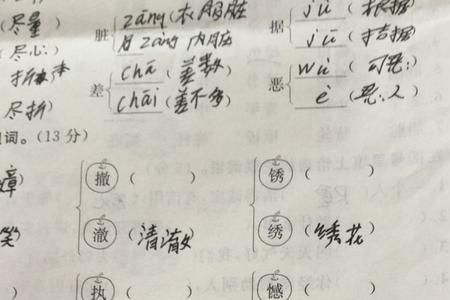 尽量) zāng (衣服脏 jù (根据)
脏 据
(尽心) zàng 内脏 jū (拮据)
chā (差数) wù (可恶)
差 恶
尽折) chāi (差不多) è (恶人)
组词。(13 分)
撤 ( ) 锈 ( )
笑) 澈 (清澈) 绣 (绣花)
) 执 ( ) 憾 ( )